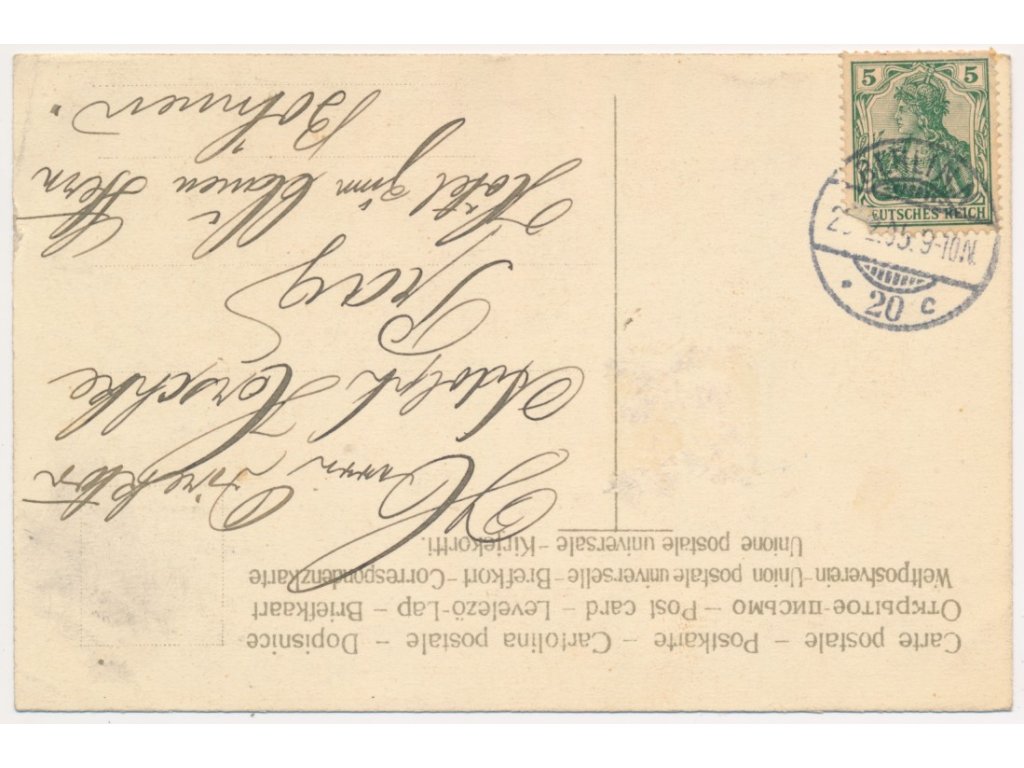 Carte postale – Postkarte – Cartolina postale – Dopisnice
Открытое письмо – Post card – Levelező-Lap – Briefkaart
Weltpostverein – Union postale universelle – Brefkort – Correspondenzkarte
Unione postale universale – Kirjekortti.
Herrn Direktor
Adolph
Prag
Hôtel zum blauen Stern
Böhmen.
5 5
DEUTSCHES REICH
BERLIN
05. 9-10N.
* 20 c